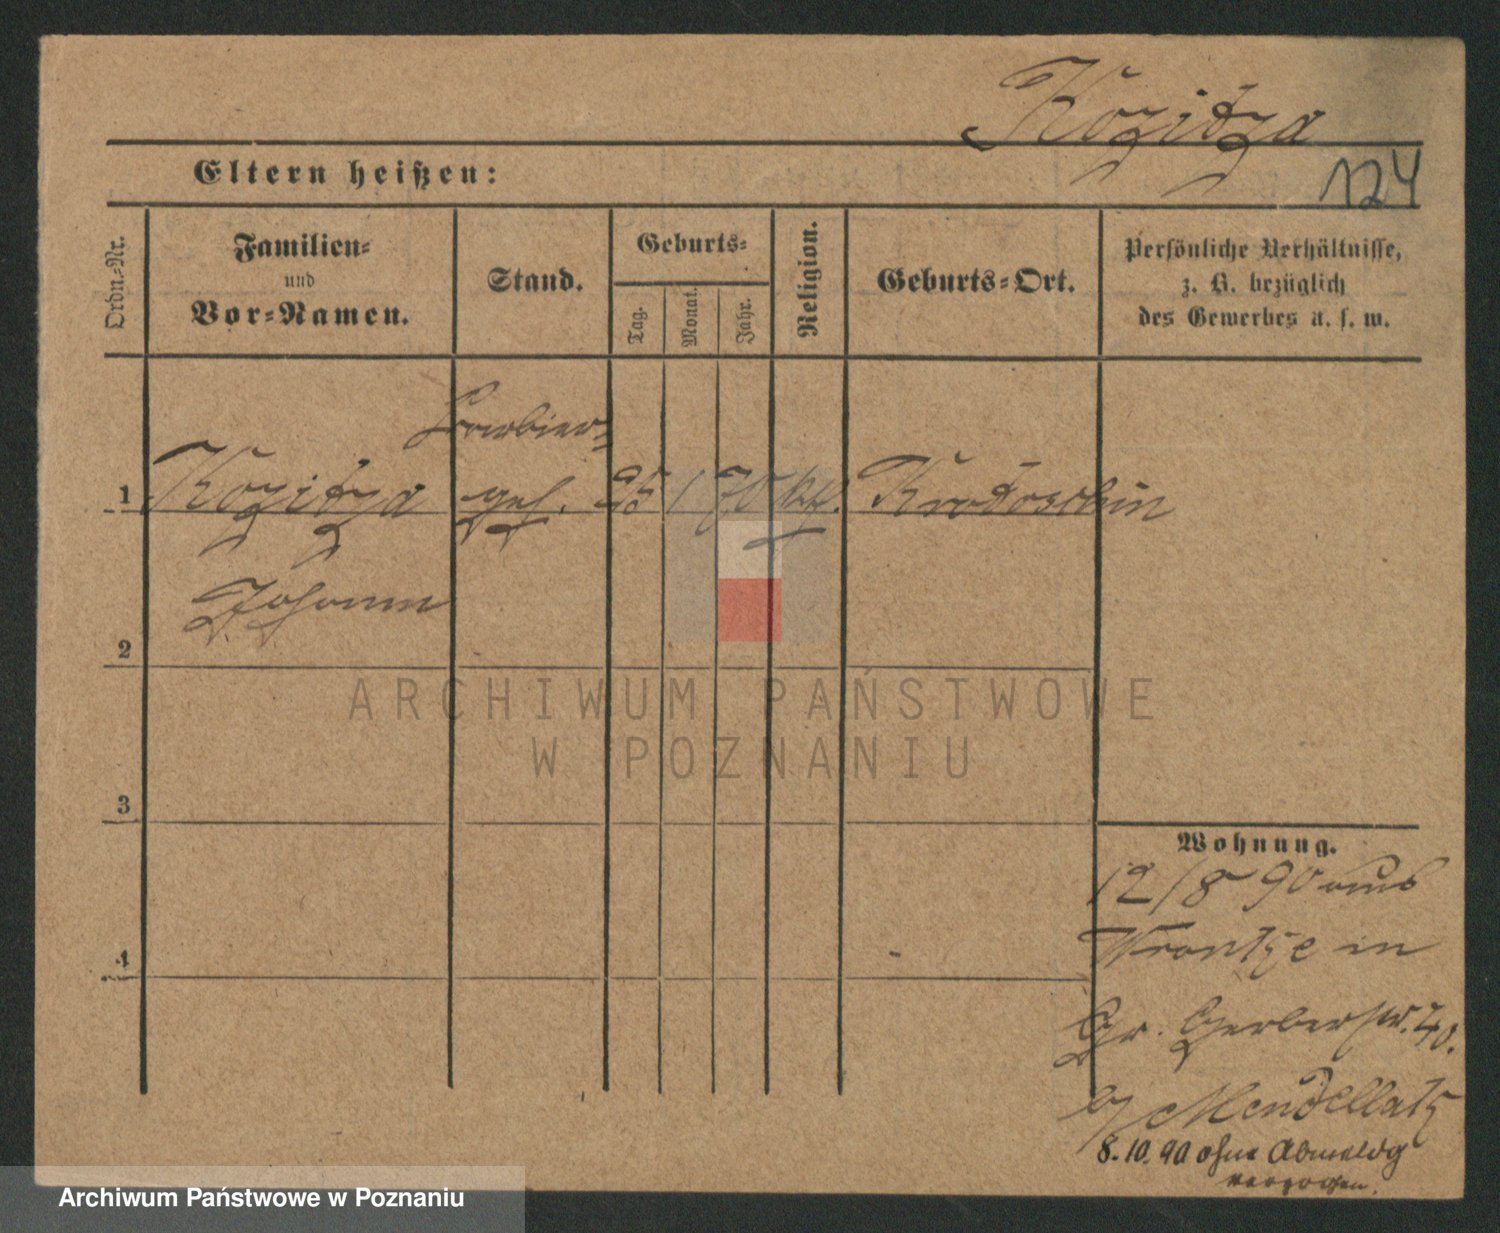 Kozitza
124
Eltern heißen:
Ordn.-Nr.
Familien-
und
Vor-Namen.
Stand.
Geburts-
Tag.
Monat.
Jahr.
Religion.
Geburts-Ort.
Persönliche Verhältnisse,
z. B. bezüglich
des Gewerbes u. s. w.
Barbier-
1 Kozitza geh. 25 1 70 kth. Krotoschin
Johann
2
3
4
ARCHIWUM PAŃSTWOWE
W POZNANIU
Wohnung.
12/8 90 aus
Wronke in
Gr. Gerberstr. 40.
b/ Mendellatz
8.10.90 ohne Abmeldg
verzogen.
Archiwum Państwowe w Poznaniu